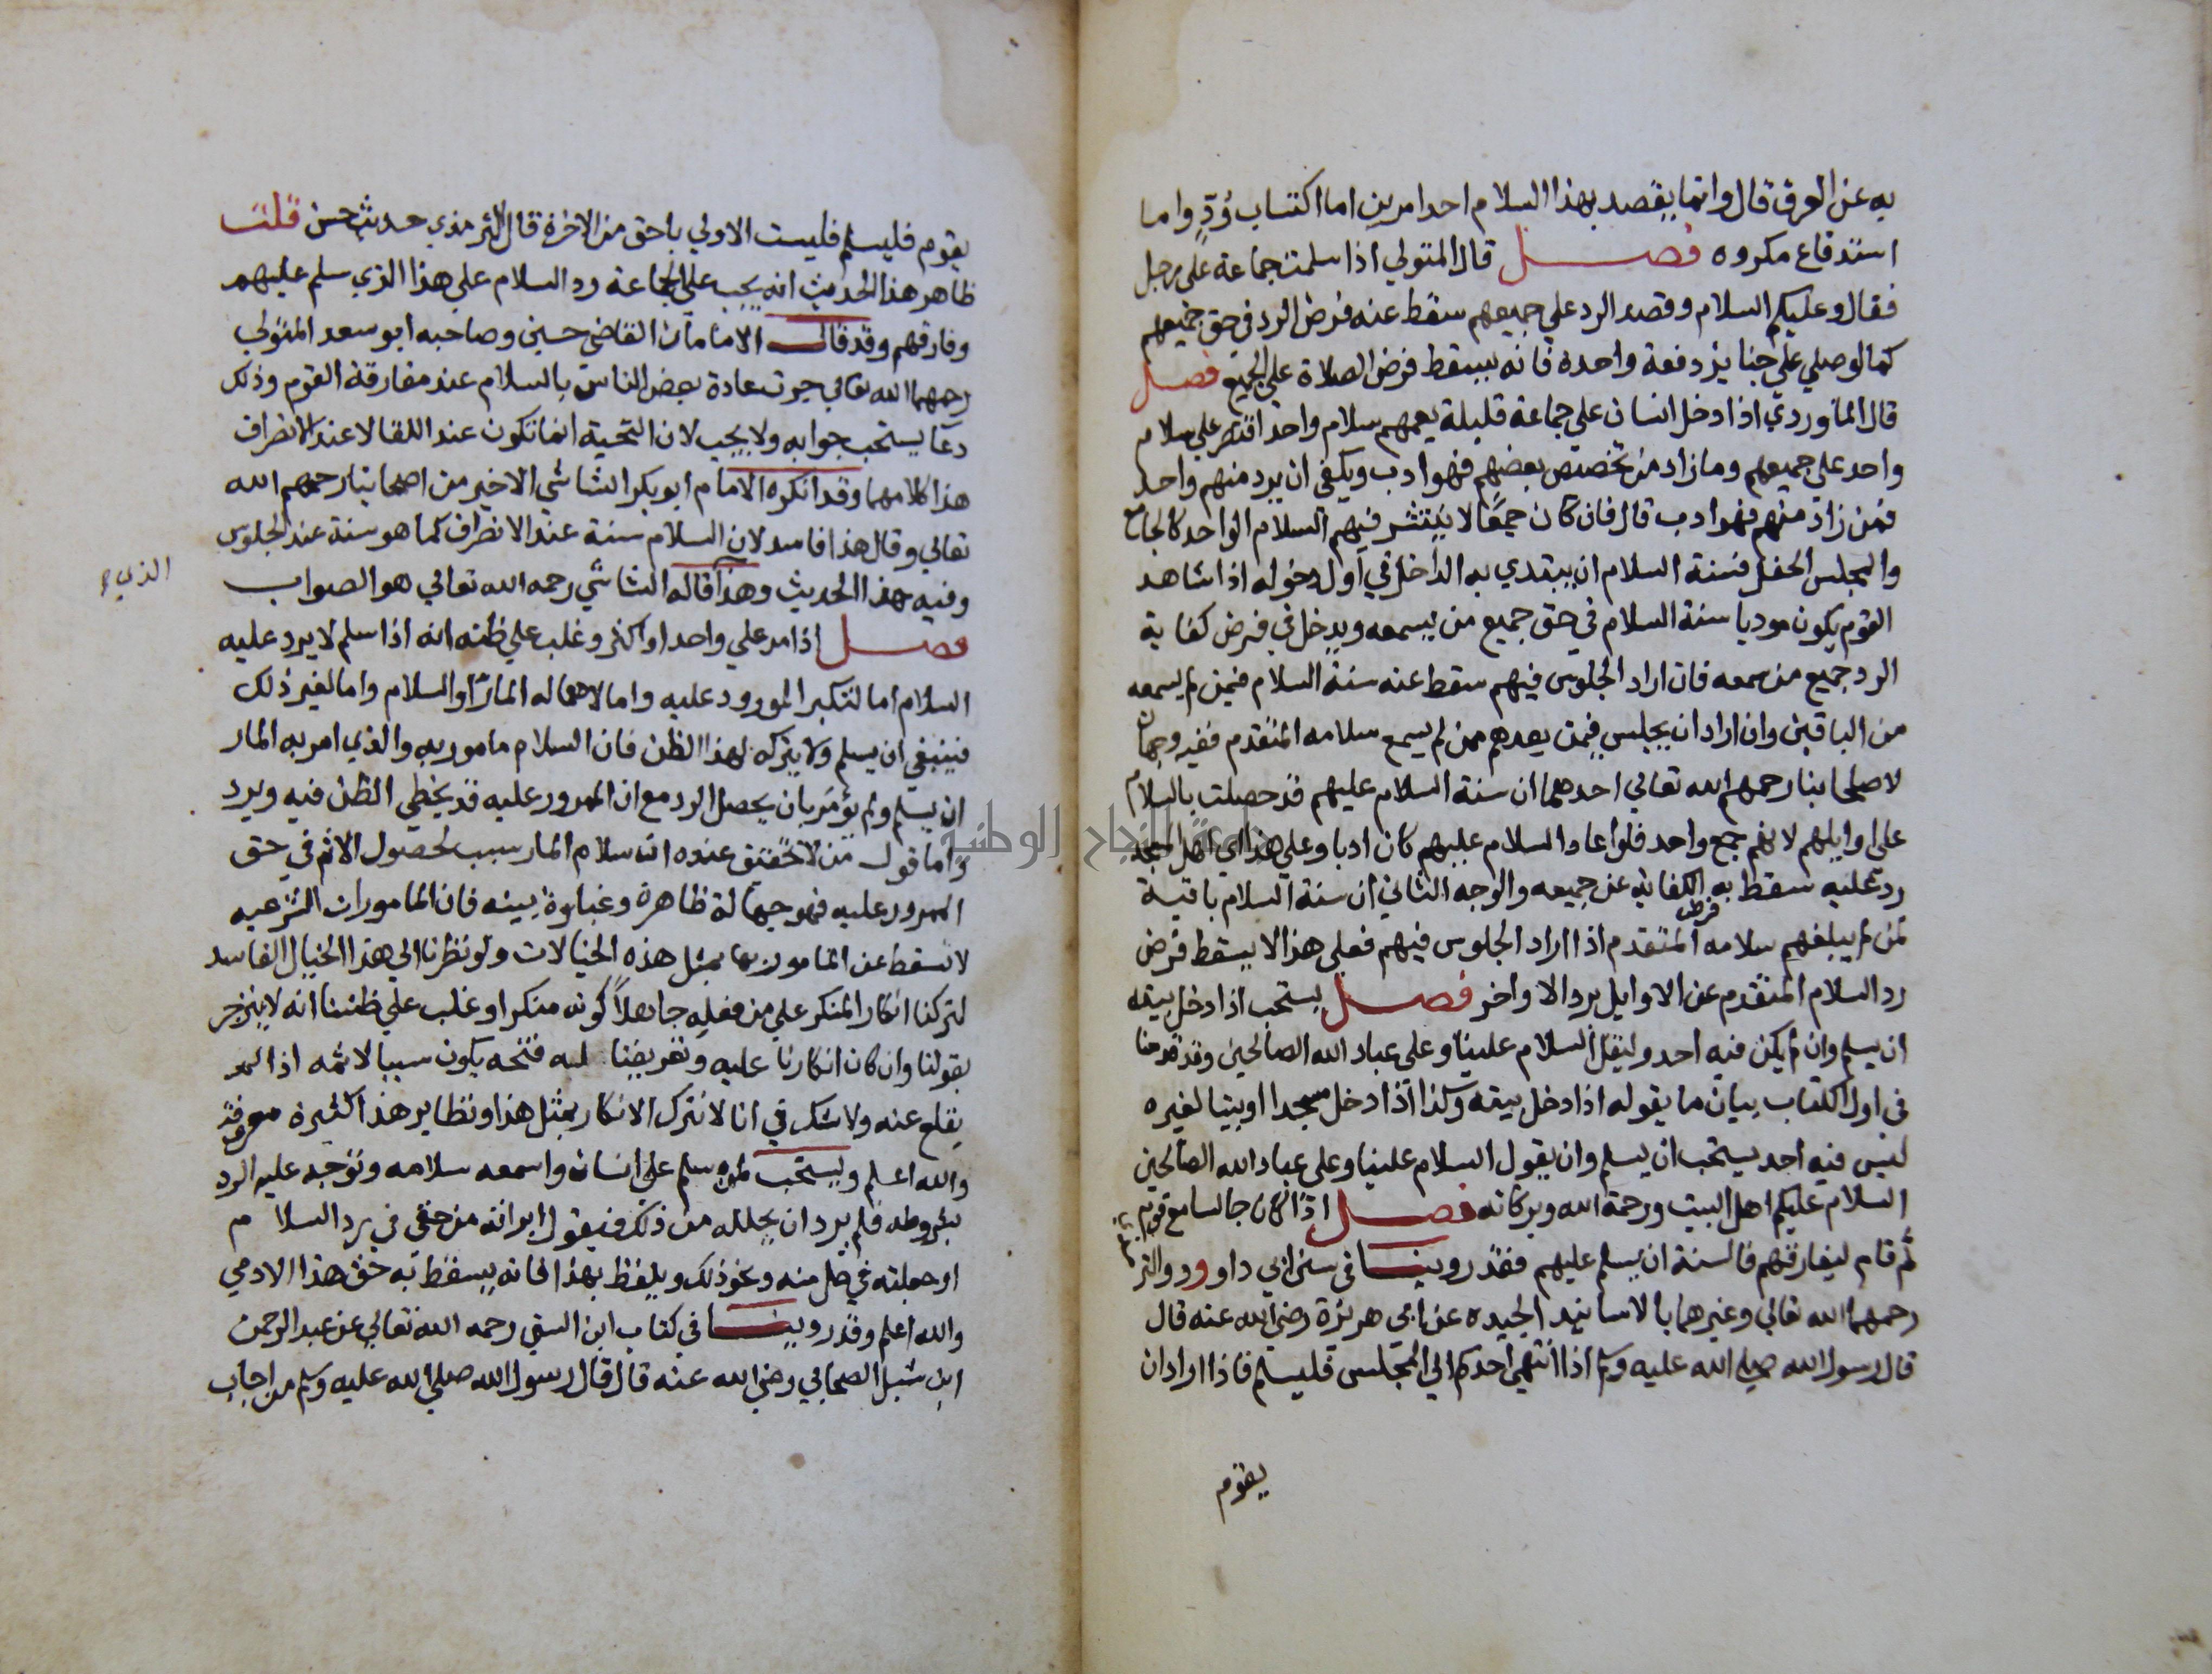 به عن العرف قال وانما يقصد بهذا السلام احد امرين اما اكتساب وُدٍّ واما
استدفاع مكروه فصل قال المتولي اذا سلمت جماعة على رجل
فقال وعليكم السلام وقصد الرد على جميعهم سقط عنه فرض الرد في حق جميعهم
كما لو صلي على جنايز دفعة واحدة فانه يسقط فرض الصلاة على الجميع فصل
قال الماوردي اذا دخل انسان على جماعة قليلة يعمهم سلام واحد اقتصر على سلام
واحد على جميعهم وما زاد من تخصيص بعضهم فهو ادب ويكفي ان يرد منهم واحد
فمن زاد منهم فهو ادب قال فان كان جمعًا لا ينتشر فيهم السلام الواحد كالجامع
والمجلس الحفل فسنة السلام ان يبتدي به الداخل في اول دخوله اذا شاهد
القوم يكون موديا سنة السلام في حق جميع من يسمعه ويدخل في فرض كفاية
الرد جميع من سمعه فان اراد الجلوس فيهم سقط عنه سنة السلام فيمن لم يسمعه
من الباقين وان اراد ان يجلس فيمن بعدهم ممن لم يسمع سلامه المتقدم ففيه وجهان
لاصحابنا رحمهم الله تعالي احدهما ان سنة السلام عليهم قد حصلت بالسلام
على اوايلهم لانهم جمع واحد فلو اعاد السلام عليهم كان ادبا وعلي هذا اي اهل المسجد
رد عليه سقط به الكفاية عن جميعه والوجه الثاني ان سنة السلام باقية
فرض
لمن لم يبلغهم سلامه المتقدم اذا اراد الجلوس فيهم فعلى هذا لا يسقط فرض
رد السلام المتقدم عن الاوايل برد الاواخر فصل يستحب اذا دخل بيته
ان يسلم وان لم يكن فيه احد وليقل السلام علينا وعلى عباد الله الصالحين وقد قدمنا
في اول الكتاب بيان ما يقوله اذا دخل بيته وكذا اذا دخل مسجدا او بيتا لغيره
ليس فيه احد يستحب ان يسلم وان يقول السلام علينا وعلى عباد الله الصالحين
السلام عليكم اهل البيت ورحمة الله وبركاته فصل اذا كان جالسا مع قوم
ثم قام ليفارقهم فالسنة ان يسلم عليهم فقد روينا في سنن ابي داوود والتر
رحمهما الله تعالي وغيرهما بالاسانيد الجيده عن ابي هريرة رضي الله عنه قال
قال رسول الله صلى الله عليه وسلم اذا انتهي احدكم الي المجلس فليسلم فاذا اراد ان
يقوم
يقوم فليسلم فليست الاولي باحق من الاخرة قال الترمذي حديث حسن قلت
ظاهر هذا الحديث انه يجب على الجماعة رد السلام على هذا الذي سلم عليهم
وفارقهم وقد قال الامامان القاضي حسين وصاحبه ابو سعد المتولي
رحمهما الله تعالي جرت عادة بعض الناس بالسلام عند مفارقة القوم وذلك
دعا يستحب جوابه ولا يجب لان التحية انما تكون عند اللقا لا عند الانصراف
هذا كلامهما وقد انكره الامام ابو بكر الشاشي الاخير من اصحابنا رحمهم الله
تعالي وقال هذا فاسد لان السلام سنة عند الانصراف كما هو سنة عند الجلوس
وفيه هذا الحديث وهذا قاله الشاشي رحمه الله تعالي هو الصواب
الذي
فصل اذا مر علي واحد او اكثر وغلب علي ظنه انه اذا سلم لا يرد عليه
السلام اما لتكبر الممرود عليه واما لاهماله المارّ او السلام واما لغير ذلك
فينبغي ان يسلم ولا يتركه لهذا الظن فان السلام مامور به والذي امر به المار
ان يسلم ولم يؤمَر بان يحصل الرد مع ان الممرور عليه قد يخطي الظن فيه ويرد
واما قول من لا تحقيق عنده ان سلام المار سبب لحصول الاثم في حق
الممرور عليه فهو جهالة ظاهرة وغباوة بينه فان المامورات الشرعيه
لا تسقط عن المامور بها بمثل هذه الخيالات ولو نظرنا الي هذا الخيال الفاسد
لتركنا انكار المنكر علي من فعله جاهلاً كونه منكرا وغلب علي ظننا انه لا ينزجر
بقولنا وان كان انكارنا عليه وتعريفنا له قبحه يكون سببا لاثمه اذا لم
يقلع عنه ولا شك في انا لا نترك الانكار بمثل هذا ونظاير هذا كثيرة معروفة
والله اعلم ويستحب لمن سلم على انسان واسمعه سلامه وتوجه عليه الرد
بشروطه فلم يرد ان يحلله من ذلك فيقول ابراته من حقي في رد السلام
او جعلته في حل منه ونحو ذلك ويلفظ بهذا فانه يسقط به حق هذا الادمي
والله اعلم وقد روينا في كتاب ابن السني رحمه الله تعالي عن عبد الرحمن
ابن شبل الصحابي رضي الله عنه قال قال رسول الله صلي الله عليه وسلم من اجاب
جامعة النجاح الوطنية